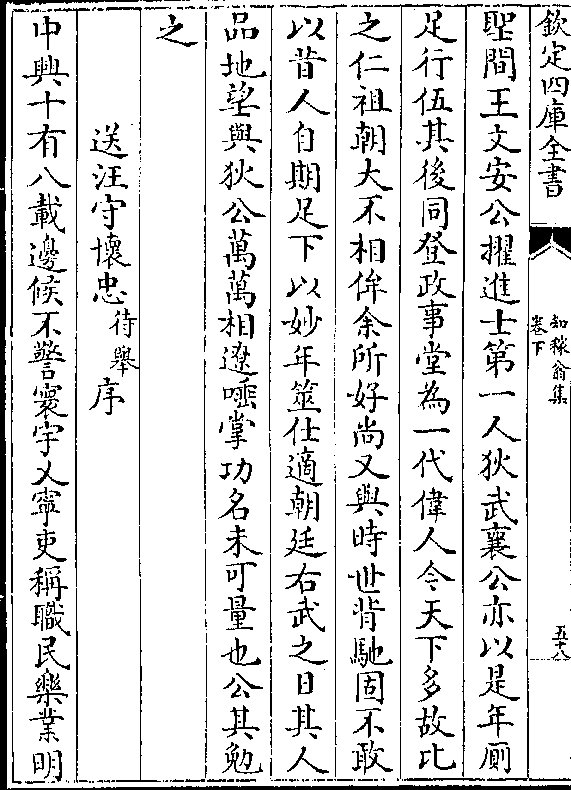 欽定四庫全書
知稼翁集
卷下
五十八
聖間王文安公擢進士第一人狄武襄公亦以是年厠
足行伍其後同登政事堂為一代偉人今天下多故比
之仁祖朝大不相侔余所好尚又與時世背馳固不敢
以昔人自期足下以妙年筮仕適朝廷右武之日其人
品地望與狄公萬萬相遼唾掌功名未可量也公其勉
之
送汪守懷忠待舉序
中興十有八載邊候不警寰宇乂寧吏稱職民樂業明